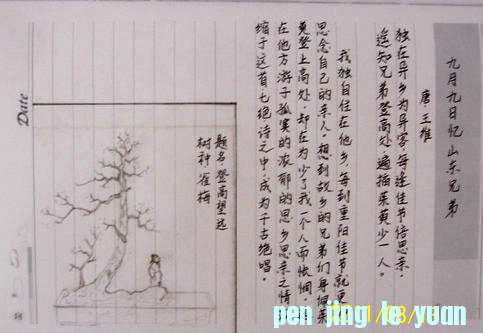 九月九日忆山东兄弟
唐 王维
独在异乡为异客,每逢佳节倍思亲.
遥知兄弟登高处,遍插茱萸少一人。
我独自住在他乡,每到重阳佳节就更
思念自己的亲人。想到故乡的兄弟们身佩茱
萸登上高处,却在为少了我一个人而怅惘。
在他方游子孤寞的浓郁的思乡思亲之情
缩于这首七绝诗之中,成为千古绝唱。
题名:登高望远
树种:雀梅
Date
pen jing le yuan